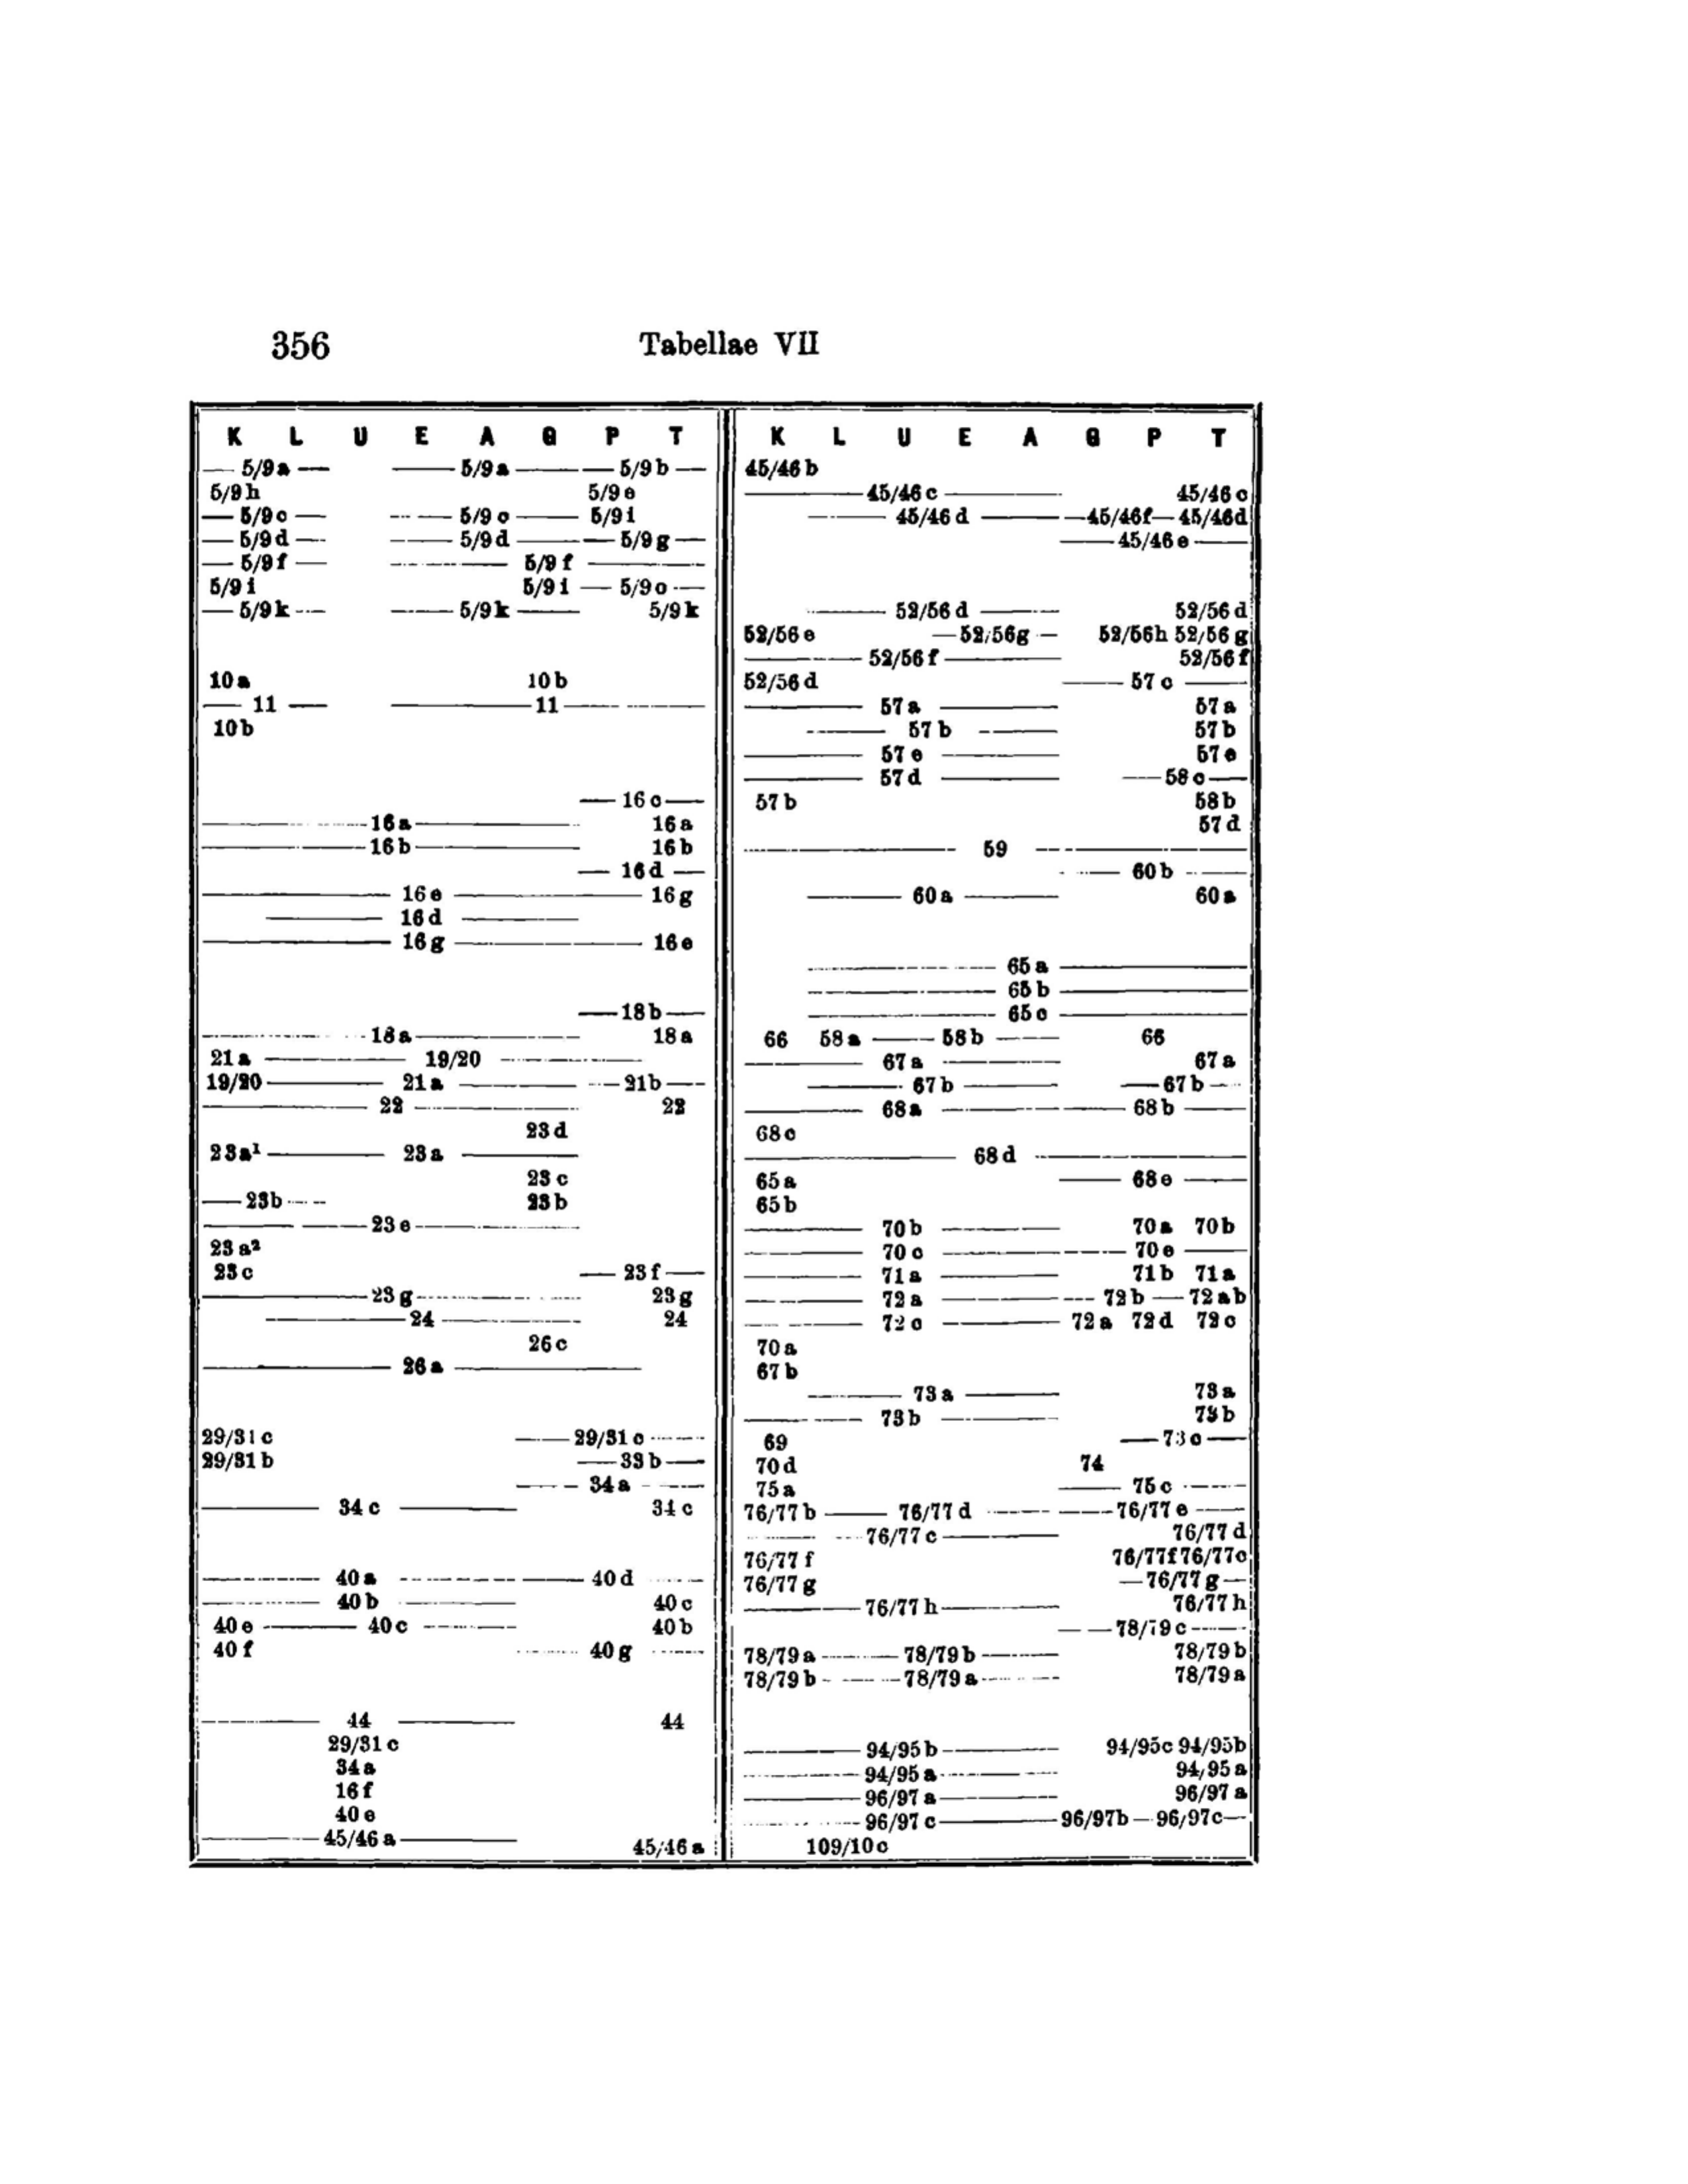 356 Tabellae VII
K L U E A G P T
— 5/9a — —— 5/9a —— — 5/9b —
5/9h 5/9e
— 5/9c — —— 5/9c —— 5/9i
— 5/9d — —— 5/9d —— — 5/9g —
— 5/9f — —— 5/9f ——
5/9i 5/9i — 5/9c —
— 5/9k — —— 5/9k —— 5/9k
10a 10b
— 11 — —— 11 ——
10b
— 16c —
—— 16a —— 16a
—— 16b —— 16b
— 16d —
—— 16e —— 16g
—— 16d ——
—— 16g —— 16e
— 18b —
—— 18a —— 18a
21a —— 19/20 ——
19/20 —— 21a —— — 21b —
—— 22 —— 22
23d
23a¹ —— 23a ——
23c
— 23b — 23b
—— 23e ——
23a²
23c — 23f —
—— 23g —— 23g
—— 24 —— 24
26c
—— 26a ——
29/31c — 29/31c —
29/31b — 33b —
— 34a —
—— 34c —— 34c
—— 40a —— —— 40d —
—— 40b —— 40c
40e —— 40c —— 40b
40f — 40g —
—— 44 —— 44
29/31c
34a
16f
40e
—— 45/46a —— 45/46a
K L U E A G P T
45/46b
—— 45/46c —— 45/46c
—— 45/46d —— — 45/46f — 45/46d
—— 45/46e ——
—— 52/56d —— 52/56d
52/56e — 52/56g — 52/56h 52/56g
—— 52/56f —— 52/56f
52/56d —— 57c ——
—— 57a —— 57a
—— 57b —— 57b
—— 57e —— 57e
—— 57d —— — 58c —
57b 58b
57d
—— 59 ——
—— 60b ——
—— 60a —— 60a
—— 65a ——
—— 65b ——
—— 65c ——
66 58a —— 58b —— 66
—— 67a —— 67a
—— 67b —— — 67b —
—— 68a —— —— 68b ——
68c
—— 68d ——
65a —— 68e ——
65b
—— 70b —— 70a 70b
—— 70c —— —— 70e ——
—— 71a —— 71b 71a
—— 72a —— — 72b — 72ab
—— 72c —— 72a 72d 72c
70a
67b
—— 73a —— 73a
—— 73b —— 73b
69 — 73c —
70d 74
75a —— 75c ——
76/77b —— 76/77d —— — 76/77e —
—— 76/77c —— 76/77d
76/77f 76/77f 76/77c
76/77g — 76/77g —
—— 76/77h —— 76/77h
—— 78/79c ——
78/79a —— 78/79b —— 78/79b
78/79b —— 78/79a —— 78/79a
—— 94/95b —— 94/95c 94/95b
—— 94/95a —— 94/95a
—— 96/97a —— 96/97a
—— 96/97c —— 96/97b — 96/97c —
109/10c